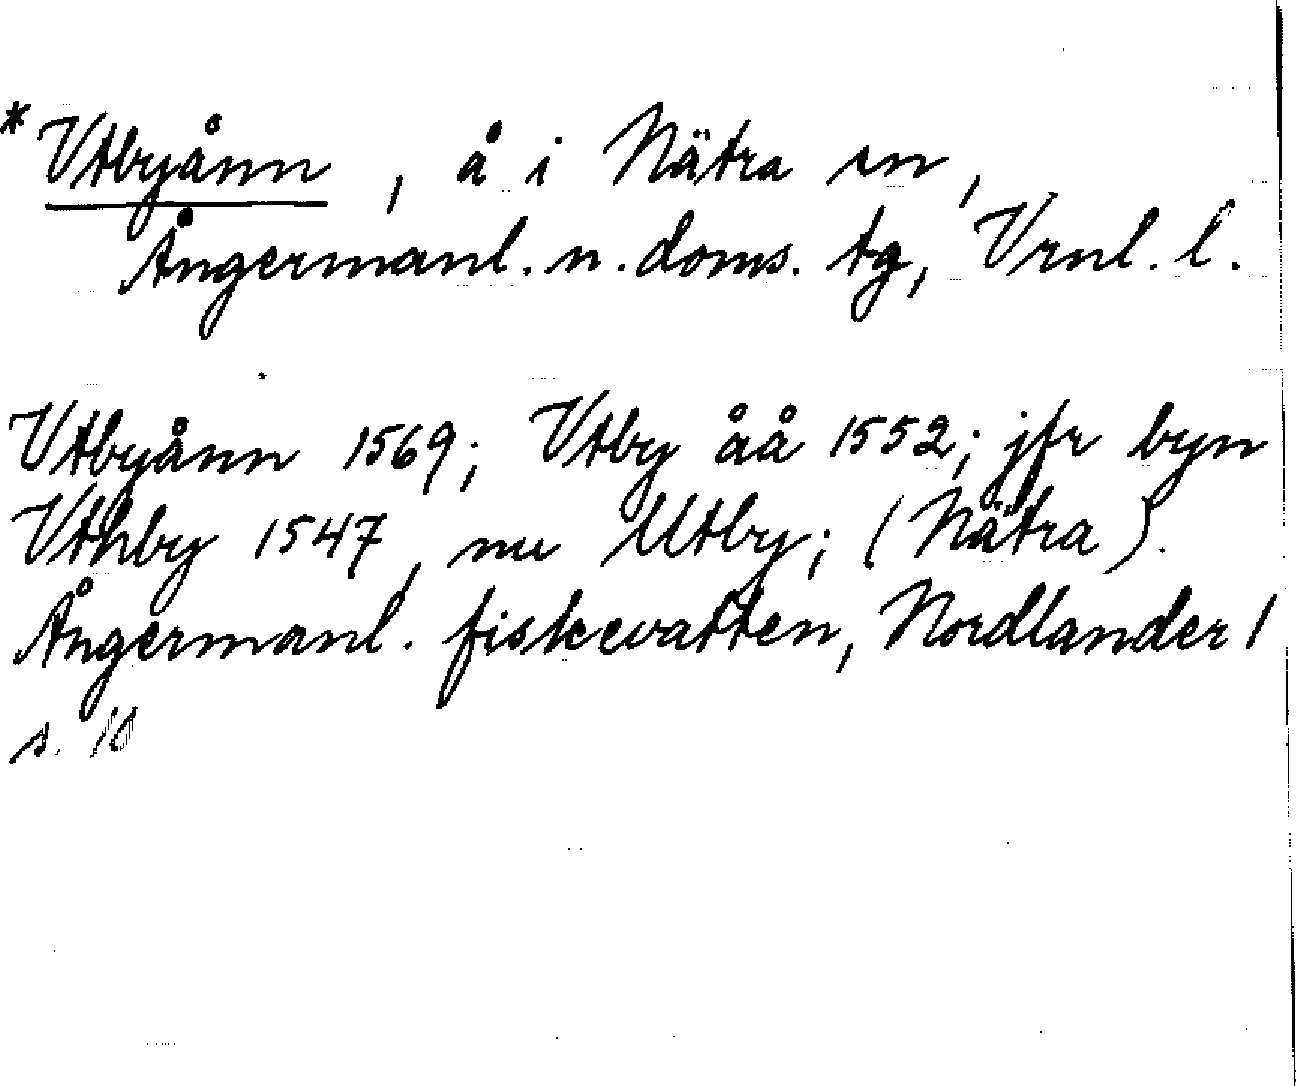 * Vtbyånn, å i Nätra sn,
Ångermanl. n. doms. tg, Vrnl. l.
Vtbyånn 1569; Vtby åå 1552; jfr byn
Vthby 1547, nu Utby; (Nätra).
Ångermanl. fiskevatten, Nordlander 1
s. 10